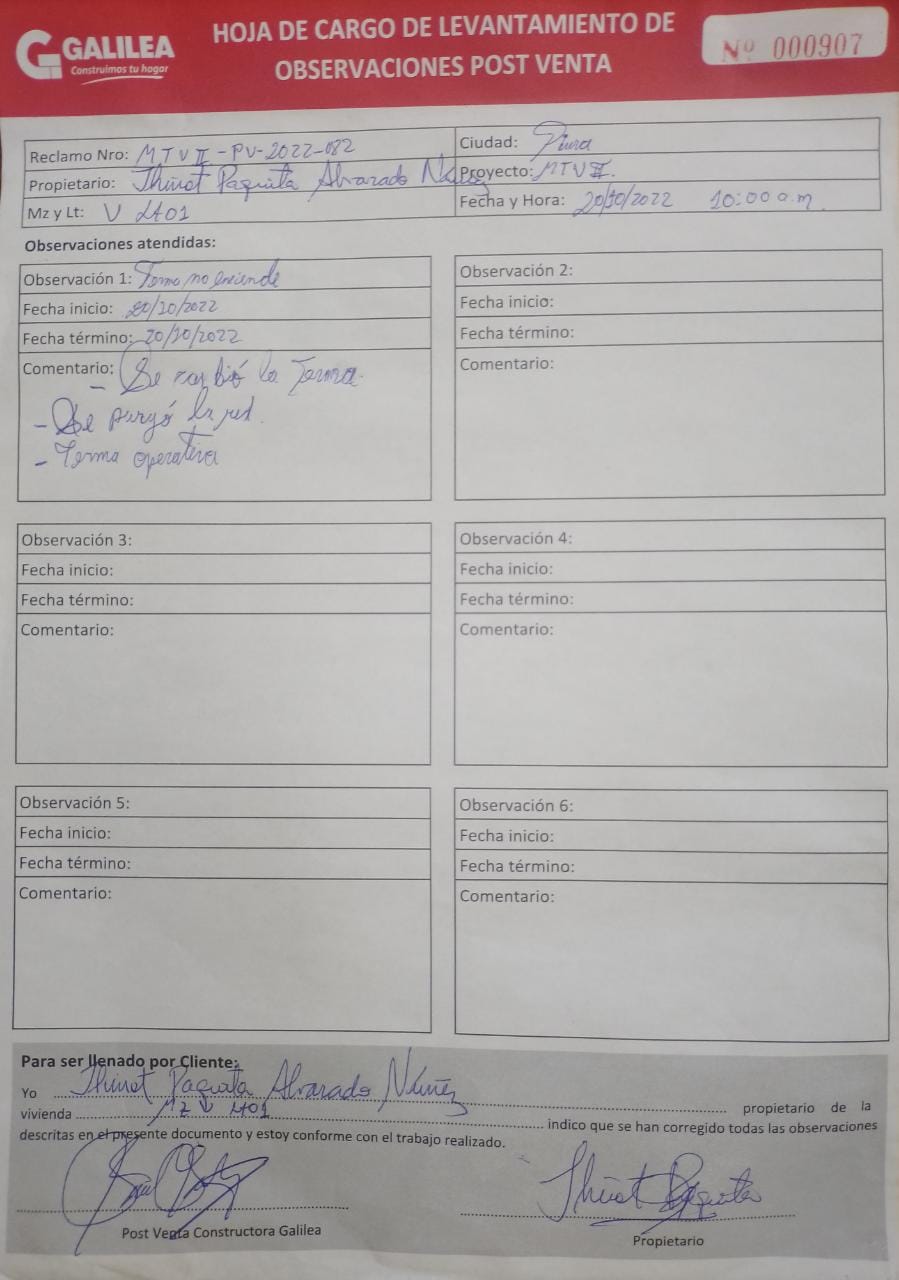 GALILEA
Construimos tu hogar
HOJA DE CARGO DE LEVANTAMIENTO DE
OBSERVACIONES POST VENTA
Nº 000907
Reclamo Nro: MTVII-PV-2022-082
Ciudad: Piura
Propietario: Thirot Paquita Alvarado Nuñez
Proyecto: MTVII.
Mz y Lt: V Lt01
Fecha y Hora: 20/10/2022 10:00 a.m.
Observaciones atendidas:
Observación 1: Terma no enciende
Fecha inicio: 20/10/2022
Fecha término: 20/10/2022
Comentario:
- Se cambió la Terma.
- Se purgó la red.
- Terma operativa
Observación 2:
Fecha inicio:
Fecha término:
Comentario:
Observación 3:
Fecha inicio:
Fecha término:
Comentario:
Observación 4:
Fecha inicio:
Fecha término:
Comentario:
Observación 5:
Fecha inicio:
Fecha término:
Comentario:
Observación 6:
Fecha inicio:
Fecha término:
Comentario:
Para ser llenado por Cliente:
Yo Thirot Paquita Alvarado Nuñez propietario de la
vivienda Mz V Lt01 indico que se han corregido todas las observaciones
descritas en el presente documento y estoy conforme con el trabajo realizado.
Thirot Paquita
Post Venta Constructora Galilea
Propietario